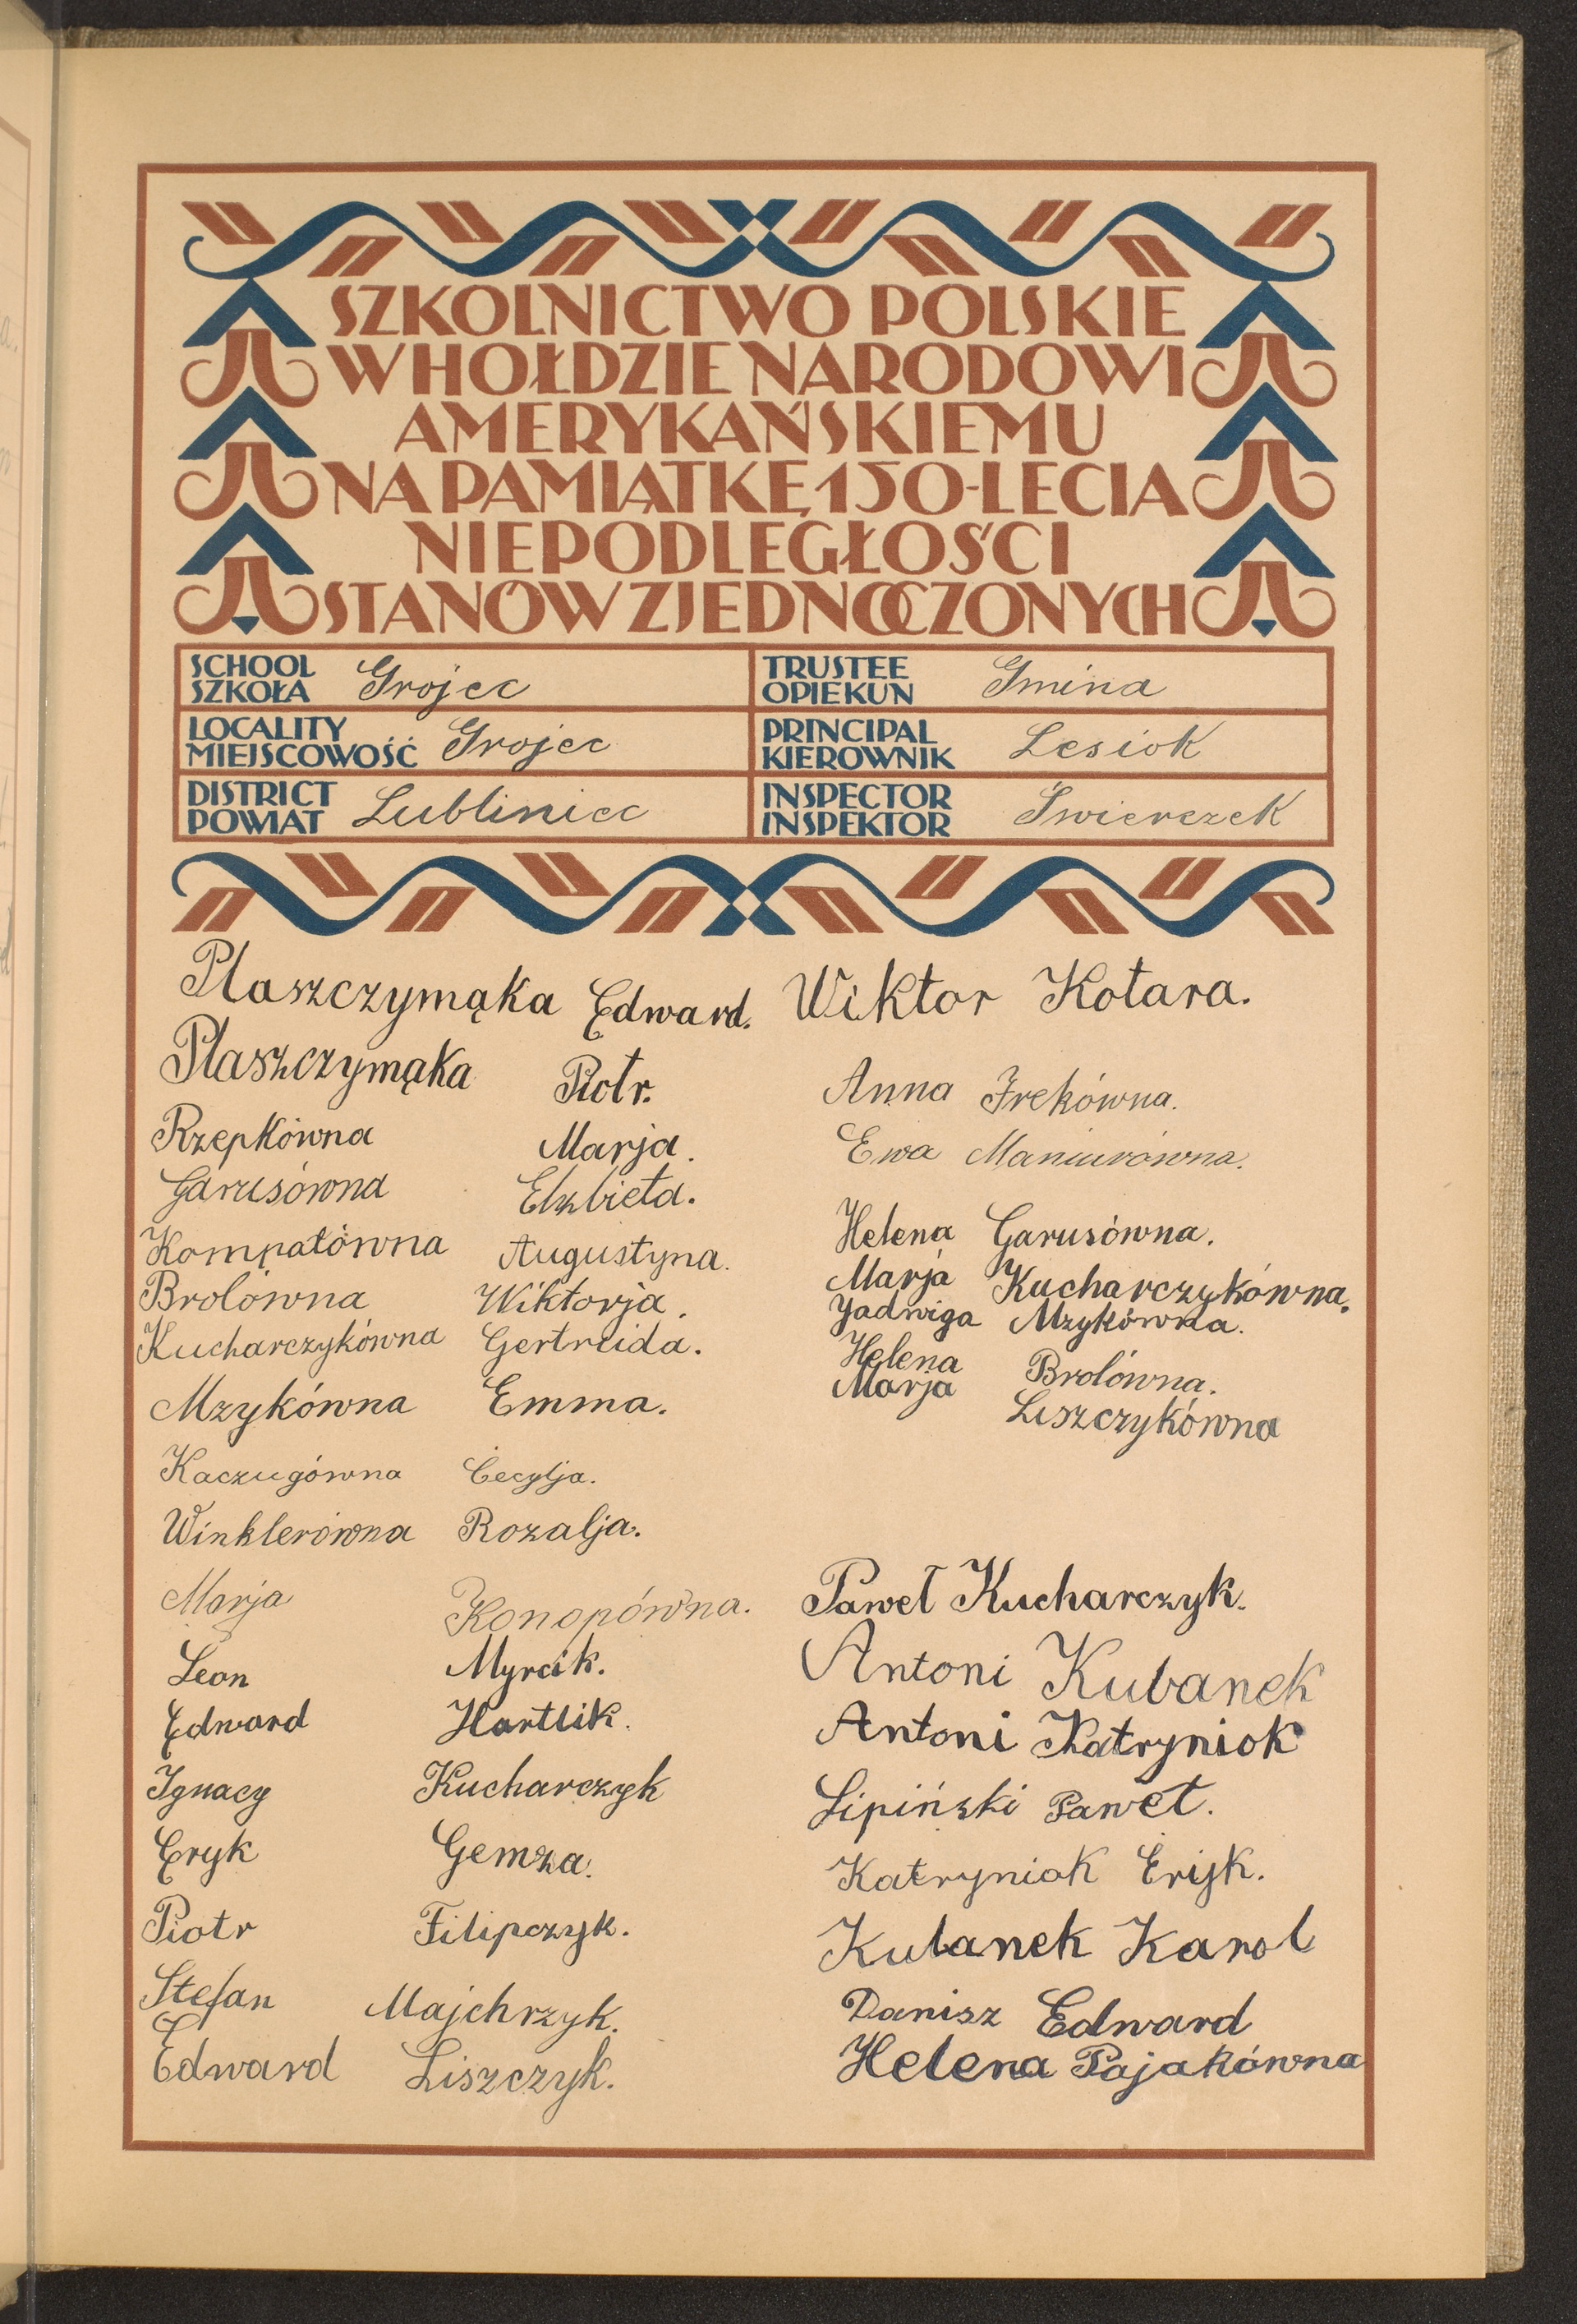 SZKOLNICTWO POLSKIE
W HOŁDZIE NARODOWI
AMERYKAŃSKIEMU
NA PAMIĄTKĘ 150-LECIA
NIEPODLEGŁOŚCI
STANÓW ZJEDNOCZONYCH
SCHOOL
SZKOŁA Grojec
TRUSTEE
OPIEKUN Gmina
LOCALITY
MIEJSCOWOŚĆ Grojec
PRINCIPAL
KIEROWNIK Lesiok
DISTRICT
POWIAT Lubliniec
INSPECTOR
INSPEKTOR Świerczek
Plaszczymąka Edward.
Plaszczymąka Piotr.
Rzepkówna Marja.
Garusówna Elżbieta.
Kompałówna Augustyna.
Brolówna Wiktorja.
Kucharczykówna Gertruida.
Mzykówna Emma.
Kaczugówna Cecylja.
Winklerówna Rozalja.
Marja Konopówna.
Leon Myrcik.
Edward Hartlik.
Ignacy Kucharczyk
Eryk Gemza.
Piotr Filipczyk.
Stefan Majchrzyk.
Edward Liszczyk.
Wiktor Kotara.
Anna Frekówna.
Ewa Maniurówna.
Helena Garusówna.
Marja Kucharczykówna.
Jadwiga Mzykówna.
Helena Brolówna.
Marja Liszczykówna
Paweł Kucharczyk.
Antoni Kubanek
Antoni Katryniok
Lipiński Paweł.
Katryniok Eryk.
Kubanek Karol
Danisz Edward
Helena Pająkówna